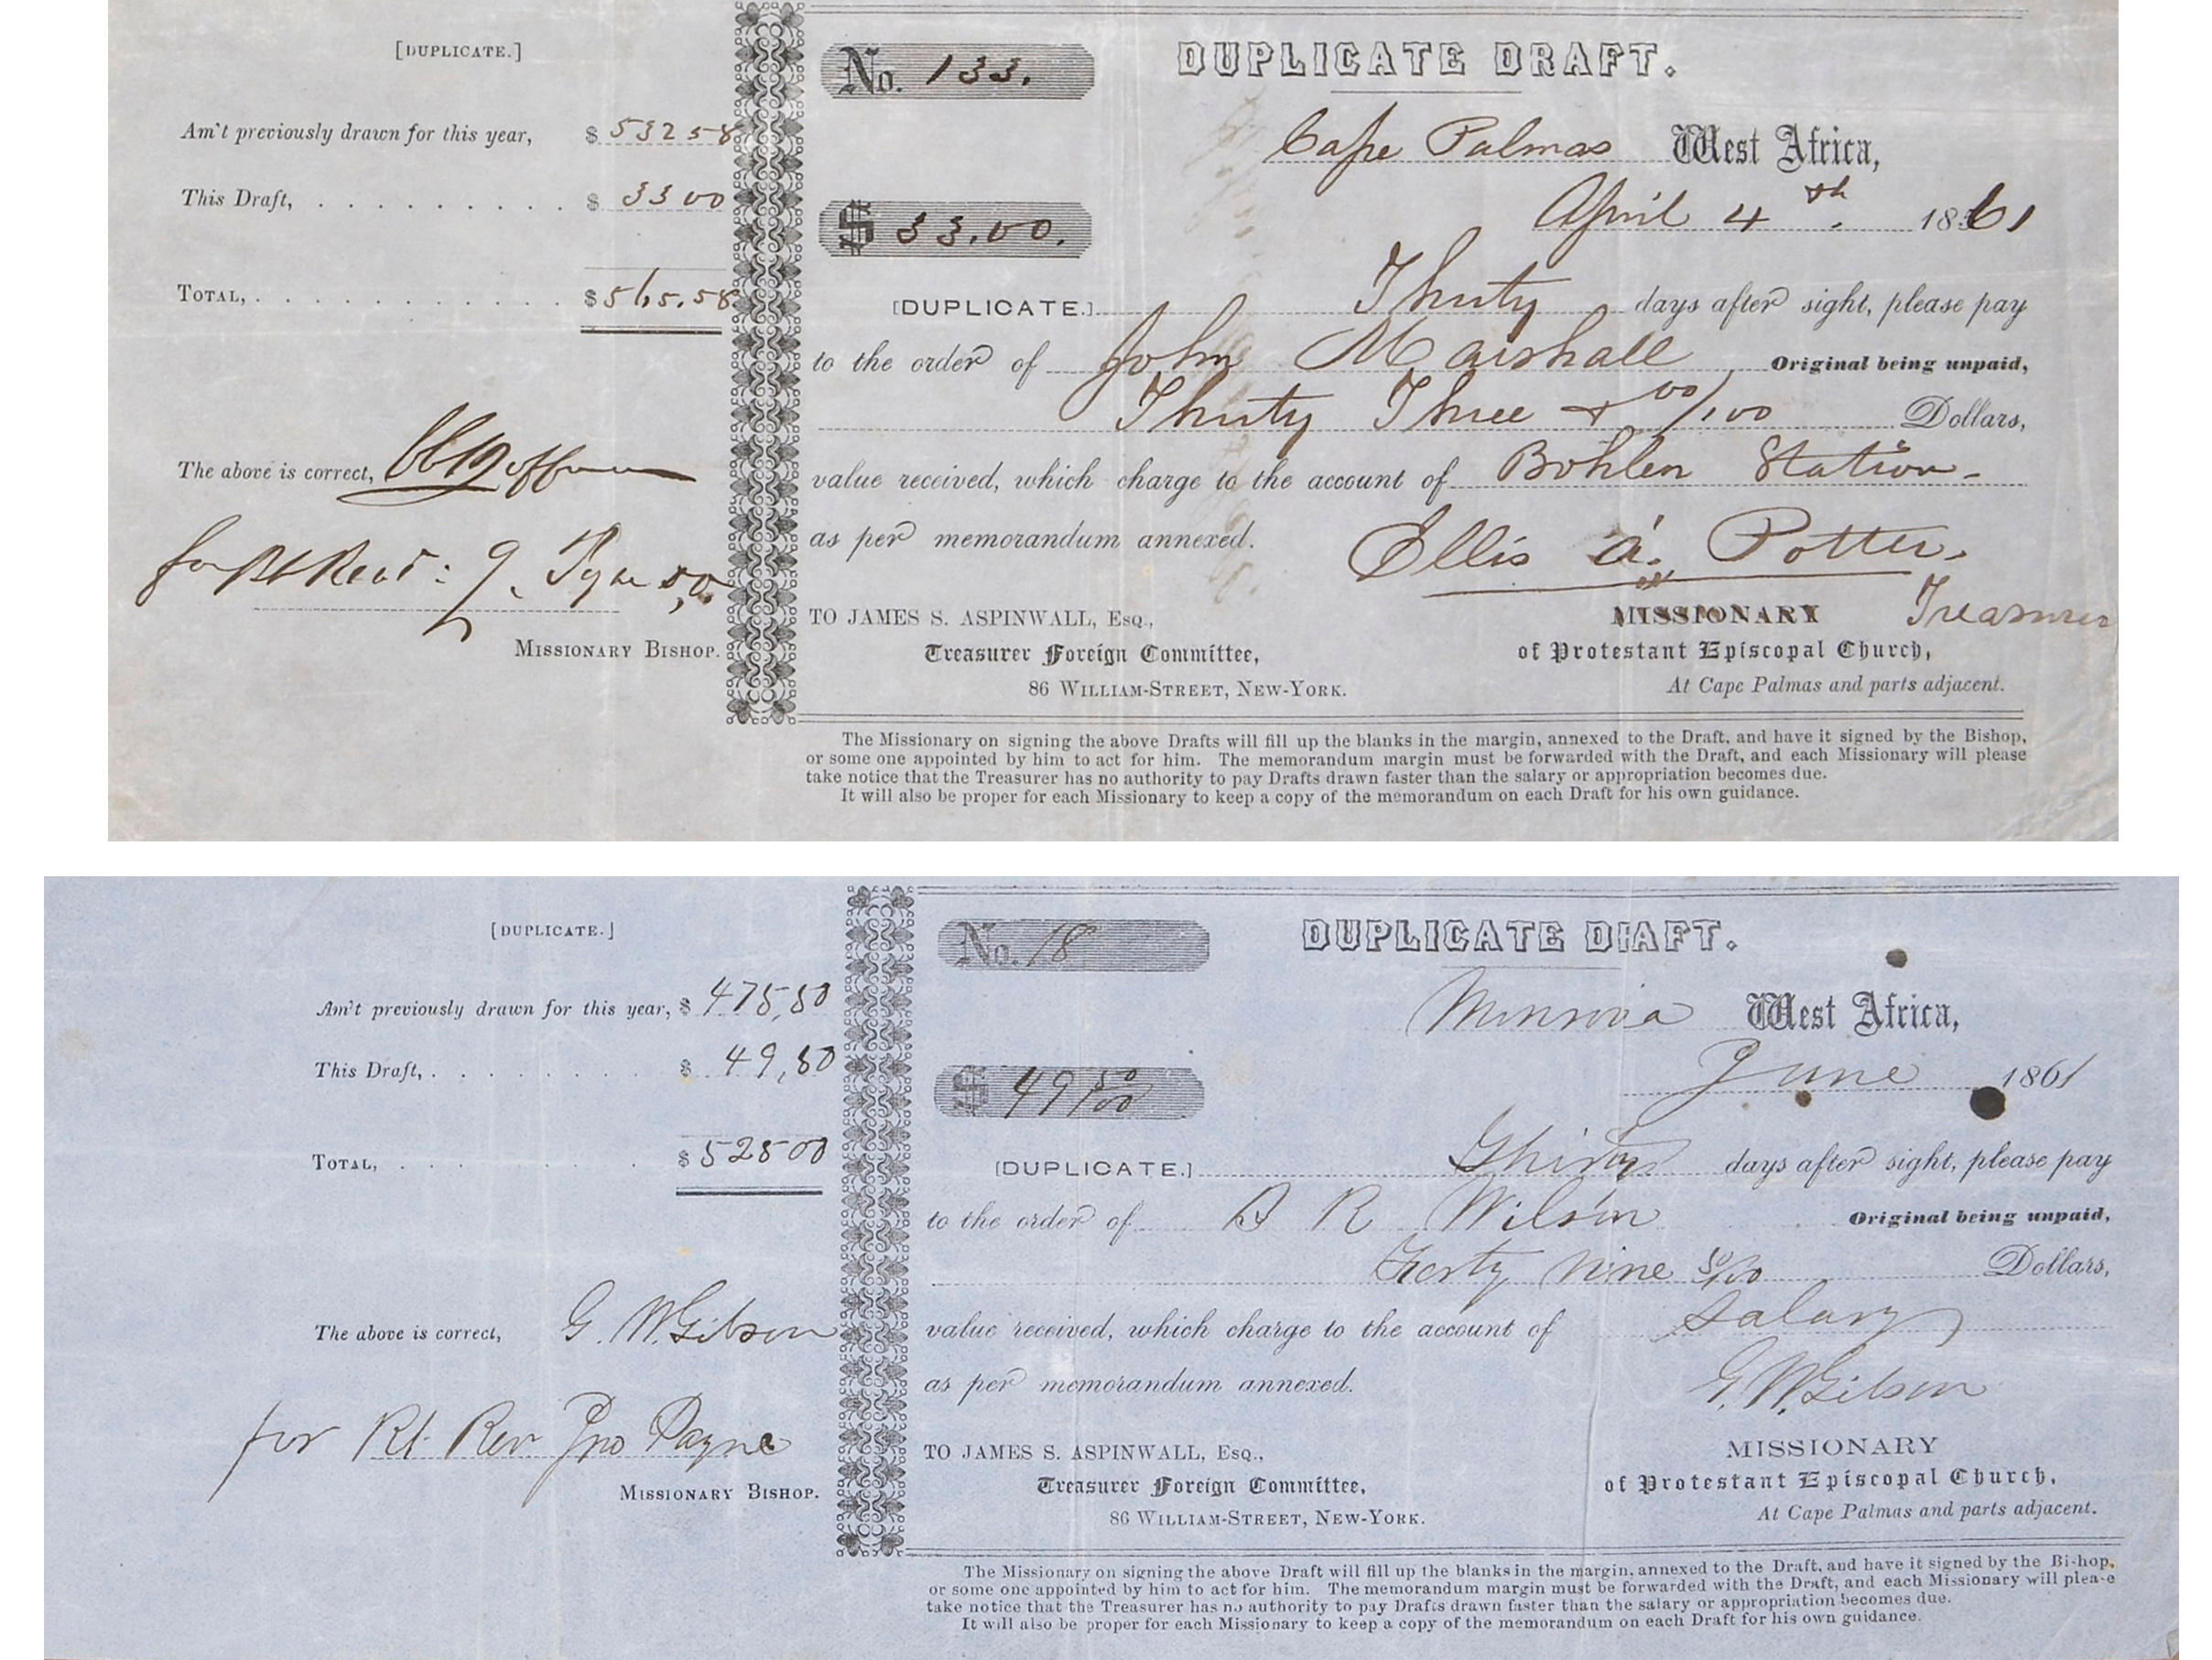 [DUPLICATE.]
Am't previously drawn for this year, $ 532 58
This Draft, . . . . . . . . . . $ 33 00
TOTAL, . . . . . . . . . . . . $ 565.58
The above is correct, CC Hoffman
for Rt Revd: J. Payne D,D.
MISSIONARY BISHOP.
No. 133.
DUPLICATE DRAFT.
Cape Palmas West Africa,
April 4th. 1861
$ 33.00.
[DUPLICATE.] Thirty days after sight, please pay
to the order of John Marshall Original being unpaid,
Thirty Three & 00/100 Dollars,
value received, which charge to the account of Bohlen Station
as per memorandum annexed. Ellis A. Potter.
TO JAMES S. ASPINWALL, Esq.,
Treasurer Foreign Committee,
86 WILLIAM-STREET, NEW-YORK.
MISSIONARY Treasurer
of Protestant Episcopal Church,
At Cape Palmas and parts adjacent.
The Missionary on signing the above Drafts will fill up the blanks in the margin, annexed to the Draft, and have it signed by the Bishop,
or some one appointed by him to act for him. The memorandum margin must be forwarded with the Draft, and each Missionary will please
take notice that the Treasurer has no authority to pay Drafts drawn faster than the salary or appropriation becomes due.
It will also be proper for each Missionary to keep a copy of the memorandum on each Draft for his own guidance.
[DUPLICATE.]
Am't previously drawn for this year, $ 475,50
This Draft, . . . . . . . $ 49,50
TOTAL, . . . . . . $ 525 00
The above is correct, G. W. Gibson
for Rt Rev Jno Payne
MISSIONARY BISHOP.
No. 18
DUPLICATE DRAFT.
Monrovia West Africa,
June 1861
$ 49 50/100
[DUPLICATE.] Thirty days after sight, please pay
to the order of B R Wilson Original being unpaid,
Forty nine 50/100 Dollars,
value received, which charge to the account of Salary
as per memorandum annexed. G. W. Gibson
TO JAMES S. ASPINWALL, Esq.,
Treasurer Foreign Committee,
86 WILLIAM-STREET, NEW-YORK.
MISSIONARY
of Protestant Episcopal Church,
At Cape Palmas and parts adjacent.
The Missionary on signing the above Draft will fill up the blanks in the margin, annexed to the Draft, and have it signed by the Bishop,
or some one appointed by him to act for him. The memorandum margin must be forwarded with the Draft, and each Missionary will please
take notice that the Treasurer has no authority to pay Drafts drawn faster than the salary or appropriation becomes due.
It will also be proper for each Missionary to keep a copy of the memorandum on each Draft for his own guidance.